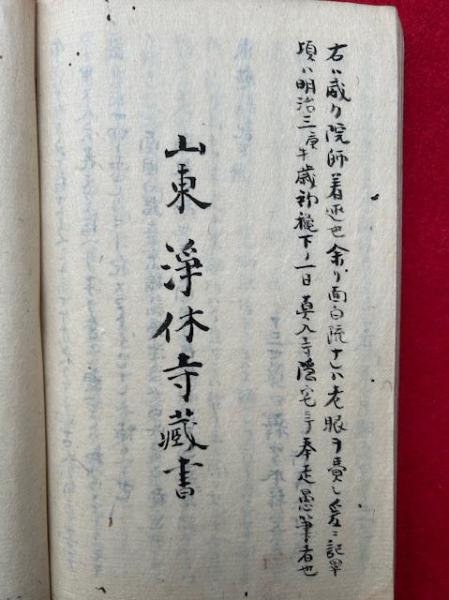 右ハ咸ク院師着述也余リ面白流ナレハ老眼ヲ費シ爰ニ記畢
頃ハ明治三庚午歳初穐下ノ一日真入寺隠宅ニテ奉走愚筆者也
山東 淨休寺藏書